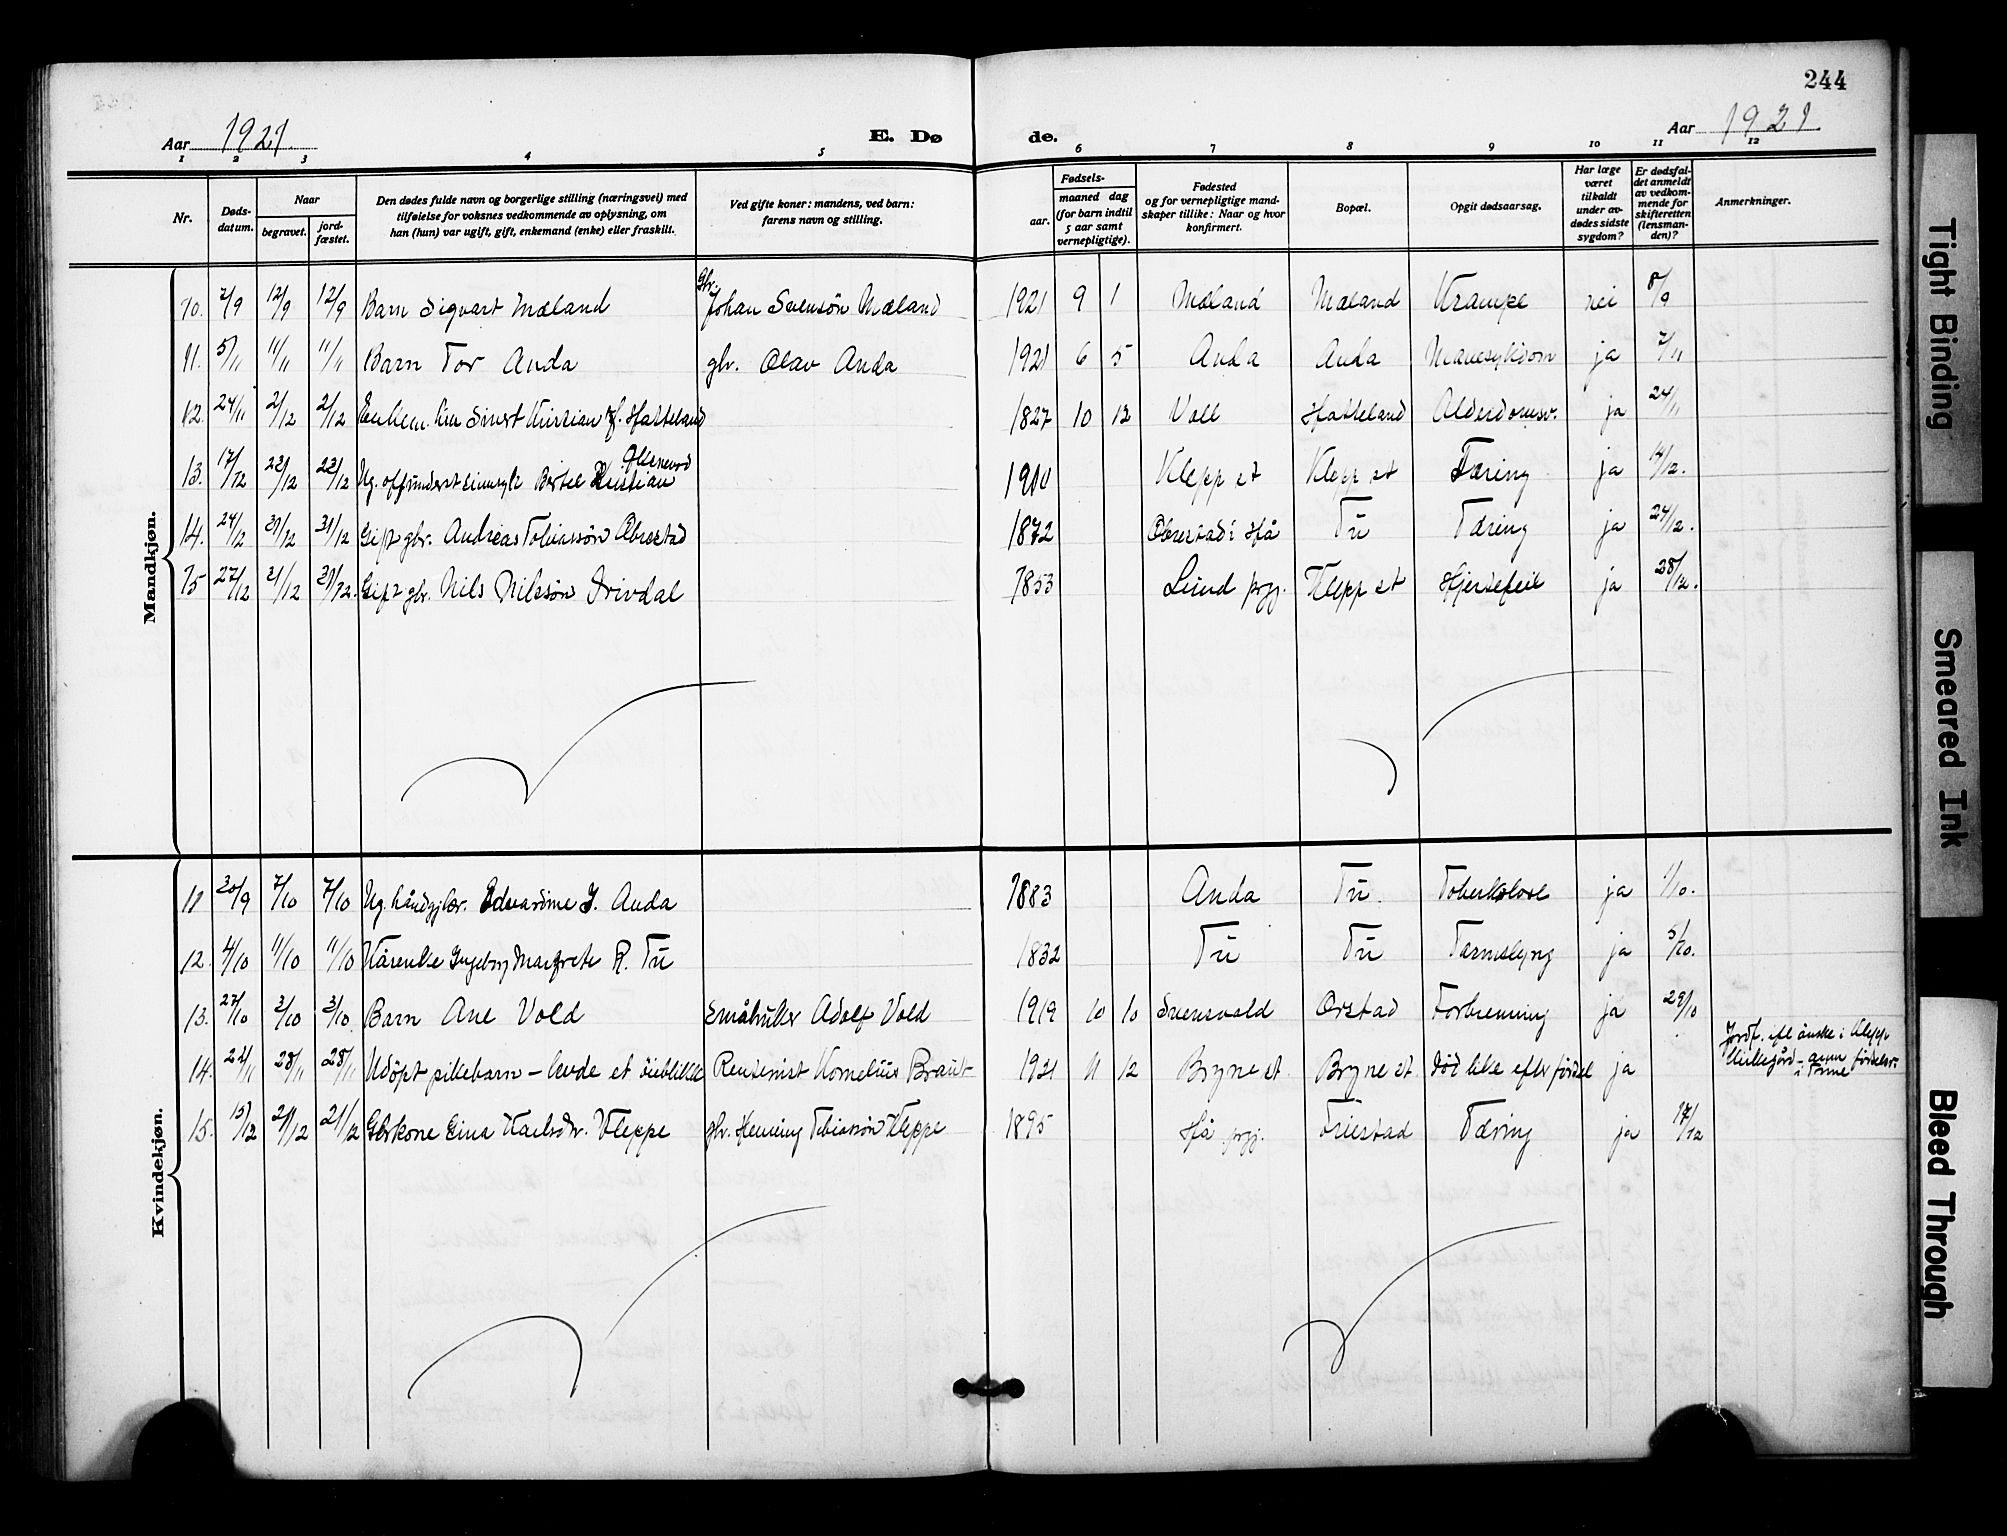 244
Aar 1921. E. Dø de. Aar 1921
1 2 3 4 5 6 7 8 9 10 11 12
Nr. Døds-datum. Naar begravet. jord-fæstet. Den dødes fulde navn og borgerlige stilling (næringsvei) med tilføielse for voksnes vedkommende av oplysning, om han (hun) var ugift, gift, enkemand (enke) eller fraskilt. Ved gifte koner: mandens, ved barn: farens navn og stilling. Fødsels- aar. maaned dag (for barn indtil 5 aar samt vernepligtige). Fødested og for vernepligtige mand-skaper tillike: Naar og hvor konfirmert. Bopæl. Opgit dødsaarsag. Har læge været tilkaldt under av-dødes sidste sygdom? Er dødsfal-det anmeldt av vedkom-mende for skifteretten (lensman-den)? Anmerkninger.
Mandkjøn.
10. 2/9 12/9 12/9 Barn Sigvart Mæland Gbr. Johan Svensøn Mæland 1921 9 1 Mæland Mæland Krampe nei 8/9
11. 5/11 11/11 11/11 Barn Tor Anda gbr. Olav Anda 1921 6 5 Anda Anda Mavesykdom ja 7/11
12. 24/11 2/12 2/12 Sivert Kristian Hatteland 1827 10 12 Voll Hatteland Alderdomsv. ja 24/11
13. 17/12 22/12 22/12 Ug. Bertel Kristian 1910 Klepp st Klepp st Tæring ja 14/12.
14. 24/12 31/12 31/12 Gift gbr. Andreas Tobiassøn Obrestad 1872 Obrestad i Hå Tu Tæring ja 27/12.
15 27/12 31/12 31/12. Gift gbr. Nils Nilssøn Drivdal 1853 Lund prgj. Klepp st Hjertefeil ja 28/12.
Kvindekjøn.
11 30/9 7/10 7/10 Ug. håndgjbr. Edvardine J. Anda 1883 Anda Tu. Toberkolose ja 1/10.
12. 4/10 11/10 11/10 Kårenke Ingeborg Margrete R. Tu 1832 Tu Tu Tarmslyng ja 5/10.
13. 27/10 3/10 3/10 Barn Ane Vold Småbruker Adolf Vold 1919 10 10 Svensvold Orstad Forbrenning ja 29/10
14. 22/11 28/11 28/11 Udøpt pikebarn – levde et øieblikk Rentenist Kornelius Braut 1921 11 12 Bryne st. Bryne st. død like efter fødsel ja Jordf. eft. ønske i Klepp
15. 15/12 21/12 21/12 Gbrkone Karlsdtr. Kleppe gbr. Henning Tobiassøn Kleppe 1895 Hå prgj. Friestad Tæring ja 17/12
Tight Binding
Smeared Ink
Bleed Through